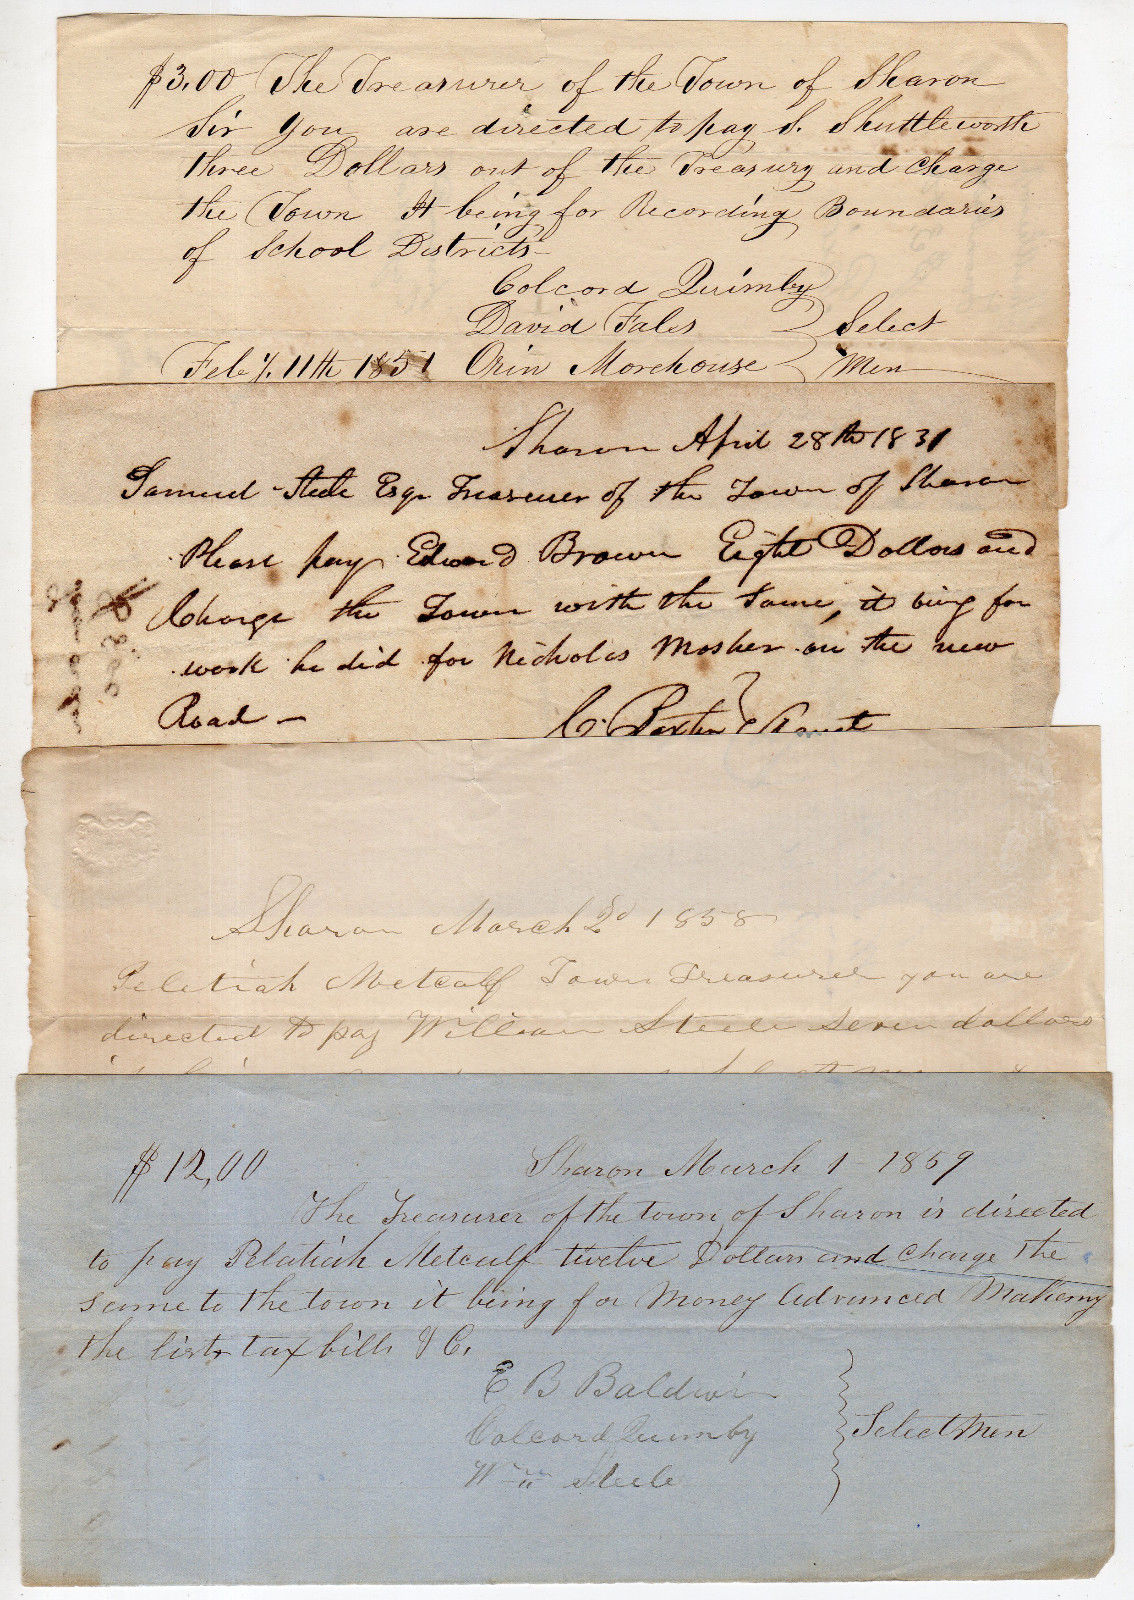 $3.00 The Treasurer of the Town of Sharon
Sir You are directed to pay S. Shuttleworth
three Dollars out of the Treasury and Charge
the Town It being for Recording Boundaries
of School Districts-
Colcord Quimby
David Fales } Select
Feby. 11th 1851 Orin Morehouse } Men
Sharon April 28th 1831
Samuel Steele Esqr Treasurer of the Town of Sharon
Please pay Edward Brown Eight Dollars and
Charge the Town with the Same, it being for
work he did for Nicholas Mosher on the new
Road -
C. Baxter }
Sharon March 2d 1858
Peletiah Metcalf Town Treasurer you are
directed to pay William Steele seven dollars
$12,00 Sharon March 1 - 1859
The Treasurer of the town of Sharon is directed
to pay Pelatiah Metcalf twelve Dollars and Charge the
same to the town it being for Money Advanced Makeing
the lists tax bills & C.
E B Baldwin
Colcord Quimby } Select Men
Wm Steele